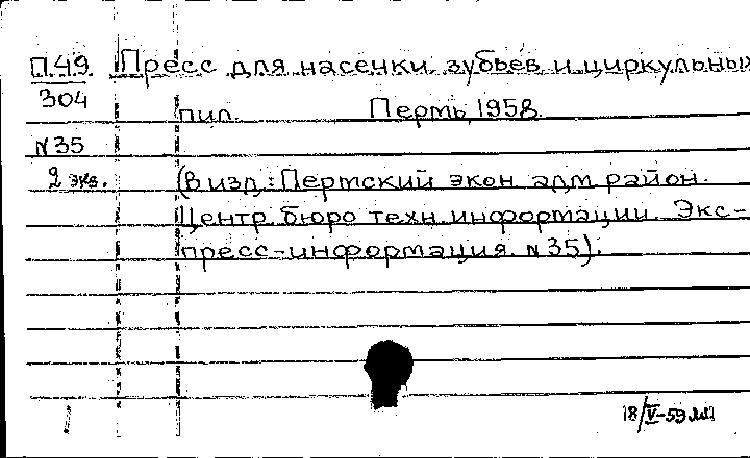 П.49 Пресс для насечки зубьев и циркульных
304
пил. Пермь, 1958.
N35
2 экз. (В изд.: Пермский экон. адм. район.
Центр. бюро техн. информации. Экс-
пресс-информация. N35).
18/V-59